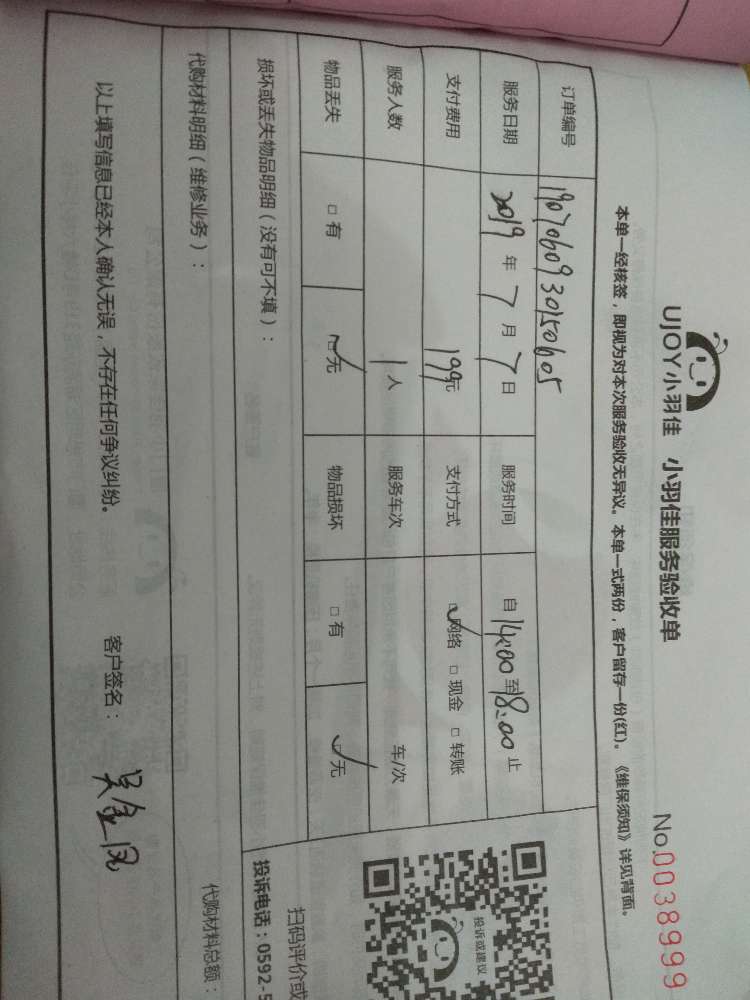 UJOY小羽佳 小羽佳服务验收单 No.0038999
本单一经核签，即视为对本次服务验收无异议。本单一式两份，客户留存一份(红)。《维保须知》详见背面。
订单编号 1907060930150605
服务日期 2019 年 7 月 7 日 服务时间 自 14:00 至 18:00 止
支付费用 199元 支付方式 ☑网络 □现金 □转账
服务人数 1 人 服务车次 车/次
物品丢失 □有 ☑无 物品损坏 □有 ☑无
投诉或建议
扫码评价或
损坏或丢失物品明细（没有可不填）：
投诉电话：0592-5
代购材料明细（维修业务）： 代购材料总额：
以上填写信息已经本人确认无误，不存在任何争议纠纷。 客户签名： 吴金凤